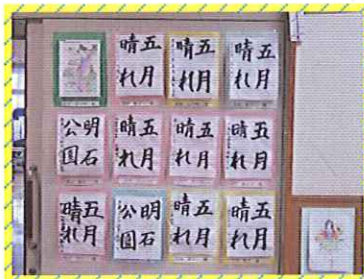 五月
晴れ
五月
晴れ
五月
晴れ
明石
公園
五月
晴れ
五月
晴れ
五月
晴れ
五月
晴れ
明石
公園
五月
晴れ
五月
晴れ